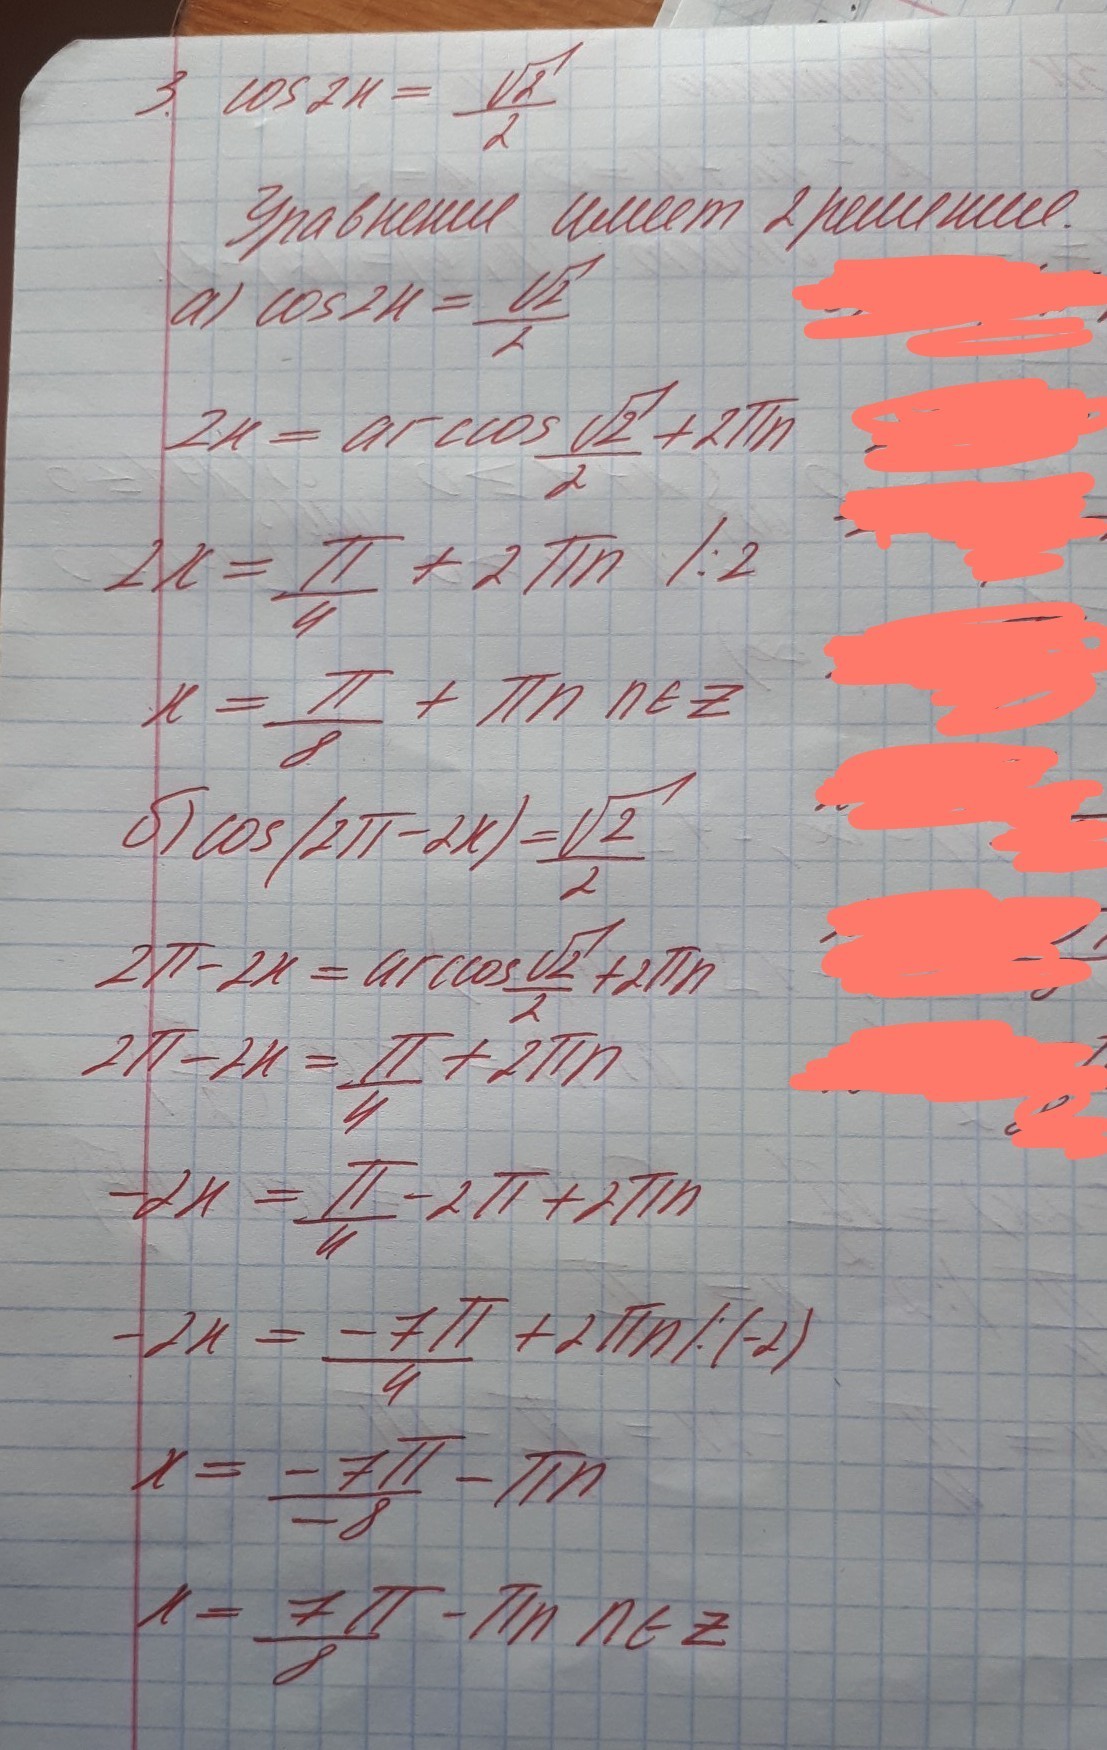 3. cos2x = √2/2
Уравнение имеет 2 решение.
а) cos2x = √2/2
2x = arccos √2/2 + 2πn
2x = π/4 + 2πn /:2
x = π/8 + πn n∈Z
б) cos(2π-2x) = √2/2
2π-2x = arccos √2/2 + 2πn
2π-2x = π/4 + 2πn
-2x = π/4 - 2π + 2πn
-2x = -7π/4 + 2πn /:(-2)
x = -7π/-8 - πn
x = 7π/8 - πn n∈Z